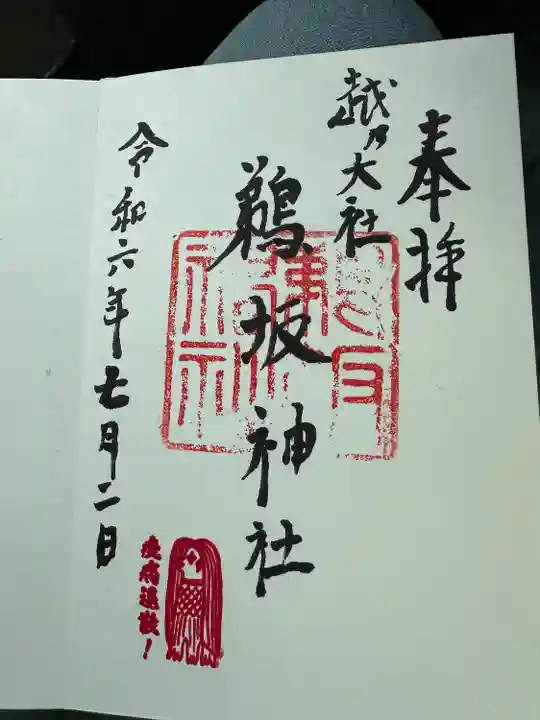 奉拝
越乃大社
鵜坂神社
令和六年七月二日
疫病退散！